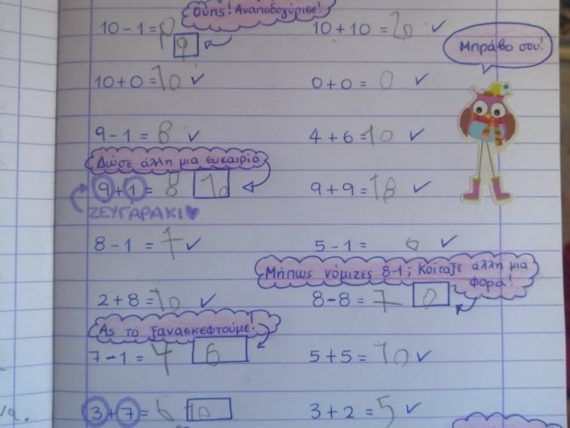 Ούπς! Αναποδογύρισε!
10 - 1 = 9 9
10 + 10 = 20 ✓
Μπράβο σου!
10 + 0 = 10 ✓
0 + 0 = 0 ✓
9 - 1 = 8 ✓
4 + 6 = 10 ✓
Δώσε άλλη μια ευκαιρία
9 + 1 = 8 10
9 + 9 = 18 ✓
ΖΕΥΓΑΡΑΚΙ
8 - 1 = 7 ✓
5 - 1 = ✓
Μήπως νόμιζες 8-1; Κοίταξε άλλη μια φορά!
2 + 8 = 10 ✓
8 - 8 = 7 0
Ας το ξανασκεφτούμε!
7 - 1 = 4 6
5 + 5 = 10 ✓
3 + 7 = 6 10
3 + 2 = 5 ✓